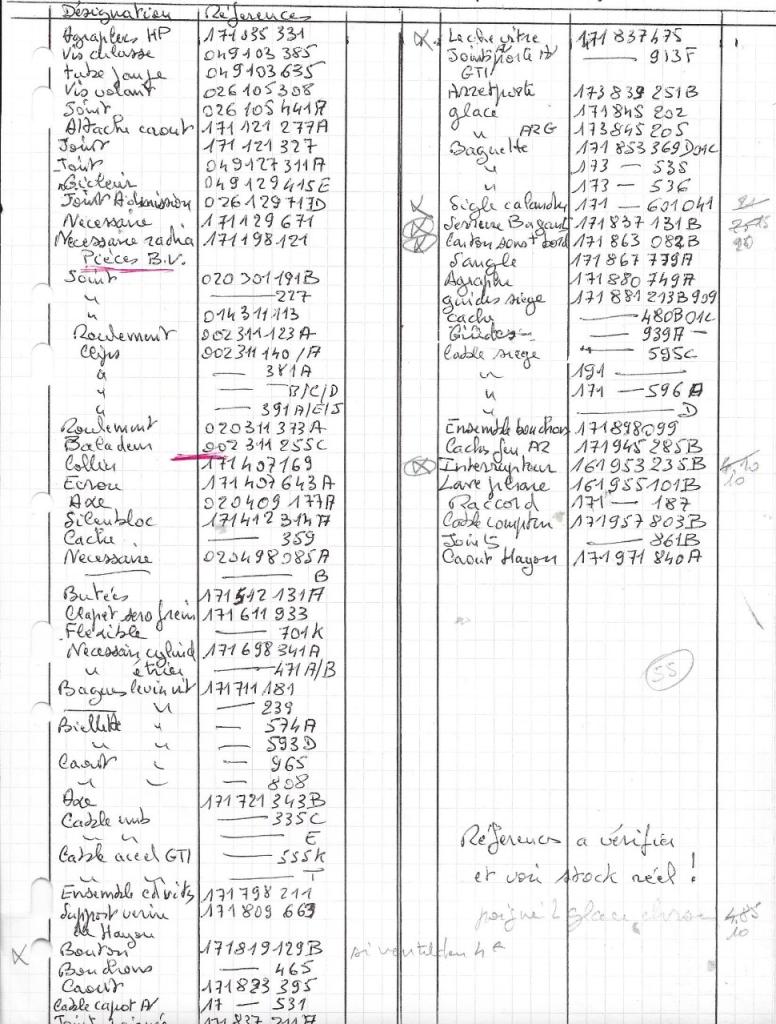 Désignation Références
Agrafes HP 171 035 331
Vis culasse 049 103 385
tube jauge 049 103 635
Vis volant 026 105 308
Joint 026 105 441A
Attache caout 171 121 277A
Joint 171 121 327
Joint 049 127 311A
Gicleur 049 129 415E
Joint Admission 026 129 717D
Necessaire 171 129 671
Necessaire radia 171 198 121
Pieces B.V.
Joint 020 301 191B
" —— 227
" 014 311 113
Roulement 002 311 123 A
Clips 002 311 140 /A
" — 381A
" — B/C/D
" — 391A/E/J
Roulement 020 311 373A
Baladeur 002 311 255C
Collier 171 407 169
Ecrou 171 407 643A
Axe 020 409 177A
Silentbloc 171 412 314A
Cache — 359
Necessaire 020 498 085A
—— —— B
Butées 171 512 131A
Clapet servo frein 171 611 933
Flexible —— 701K
Necessaire cylind 171 698 341A
" étrier —— 471A/B
Bagues levier vit 171 711 181
—— " — 239
Biellette " — 574A
" " — 593D
Caout " — 965
" — — 808
Axe 171 721 343B
Cable emb —— 335C
" " —— E
Cable accel GTI —— 555K
—— T
Ensemble 171 798 211
Support verin 171 809 663
de Hayon
X Bouton 171 819 129B
Bouchons —— 465
Caout 171 823 395
Cable capot AV 17 — 531
171 837 211A
X Leche vitre 171 837 475
Joint porte AV —— 913F
GTI
Arret porte 173 839 251B
glace 171 845 202
" ARG 173 845 205
Baguette 171 853 369D 01C
" 173 — 535
" 173 — 536
X Sigle calandre 171 — 601 041
X Serrure 171 837 131B
X Carton sous + bord 171 863 082B 90
Sangle 171 867 779A
Agrafe 171 880 749A
guides siege 171 881 213B 909
cache —— 480B 01C
Guides — —— 939A —
Cable siege " — 595C
" 191 ——
" 171 — 596 A
" —— D
Ensemble bouchons 171 898 099
Cache feu AR 171 945 285B
X Interrupteur 161 953 235B 10
Lave phare 161 955 101B
Raccord 171 — 187
Cable compteur 171 957 803B
Joints —— 861B
Caout Hayon 171 971 840A
55
Réferences a vérifier
et voir stock réel !
poignée glace chrom 4,85
10